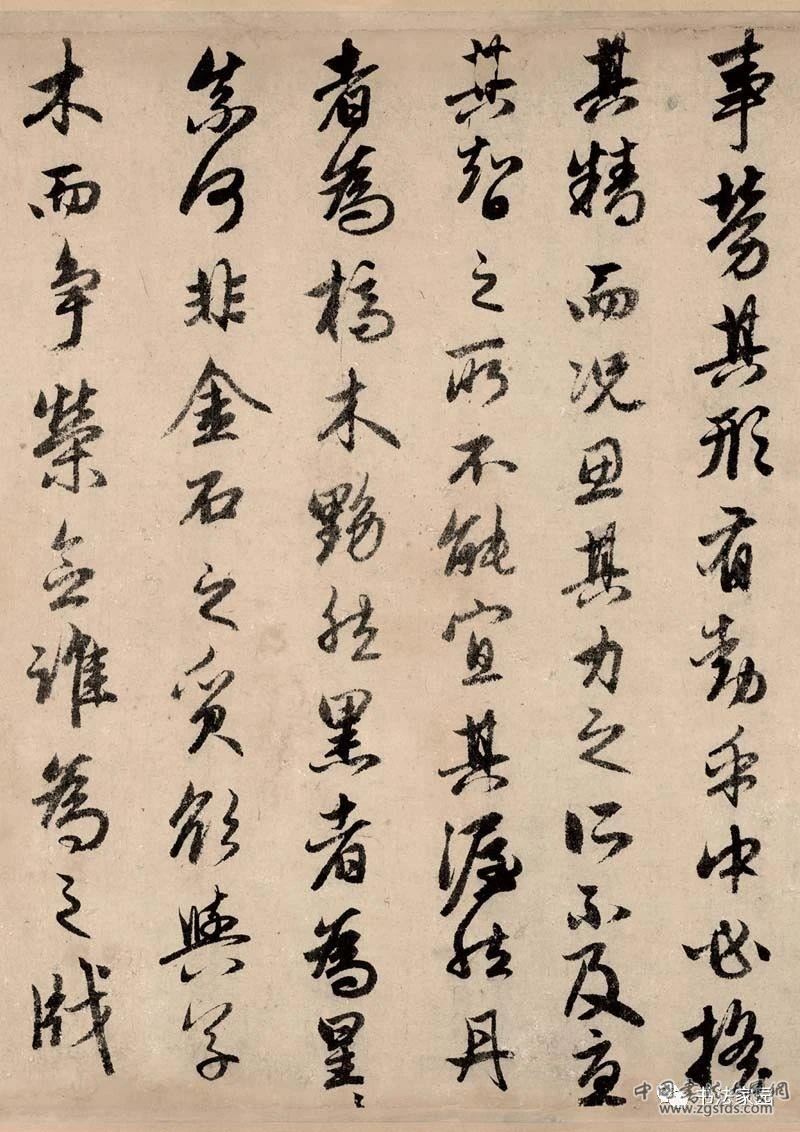 事勞其形有動乎中必搖
其精而況思其力之所不及憂
其智之所不能宜其渥然丹
者為槁木黟然黑者為星〻
奈何非金石之質欲與草
木而爭榮念誰為之戕
书法家园
www.zgsfds.com